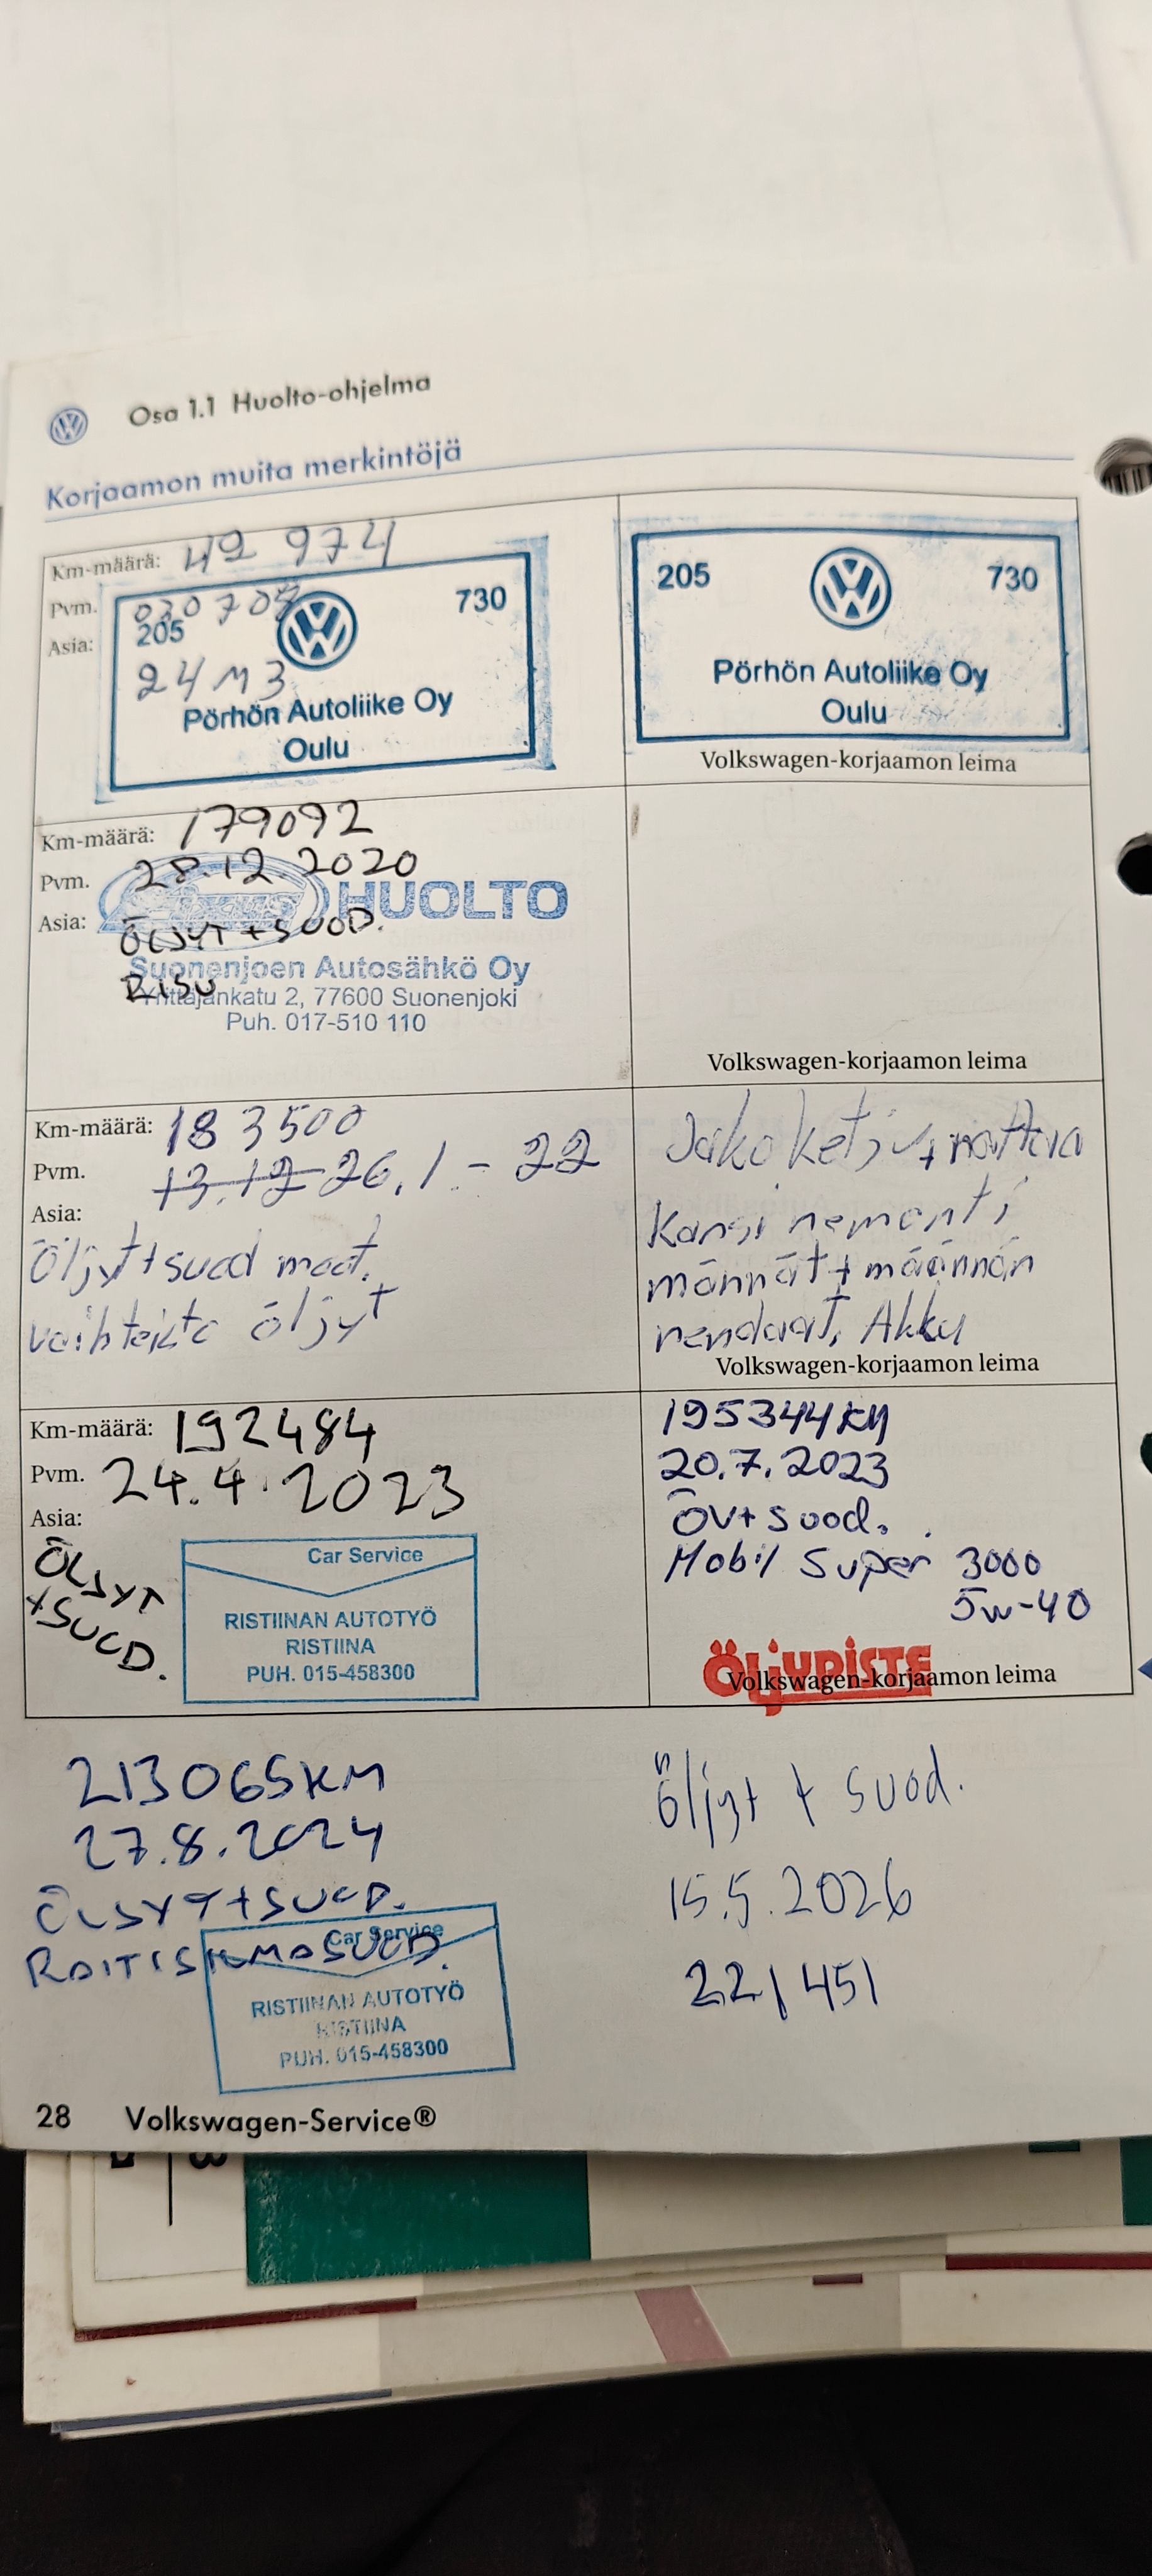 Osa 1.1 Huolto-ohjelma
Korjaamon muita merkintöjä
Km-määrä: 49 974
Pvm. 030708
Asia:
205 730
24 M3
Pörhön Autoliike Oy
Oulu
205 730
Pörhön Autoliike Oy
Oulu
Volkswagen-korjaamon leima
Km-määrä: 179092
Pvm. 28.12 2020
HUOLTO
Asia: ÖLJYT + SUOD.
Suonenjoen Autosähkö Oy
RISU
Yrittäjänkatu 2, 77600 Suonenjoki
Puh. 017-510 110
Volkswagen-korjaamon leima
Km-määrä: 183500
Pvm. 13.12 26.1 - 22
Asia:
Öljyt + suod moot.
vaihteisto öljyt
Jakoketju + rattaa
Kansi remonti
männät + männän
renkaat, Akku
Volkswagen-korjaamon leima
Km-määrä: 192484
Pvm. 24.4.2023
Asia:
ÖLJYT
+SUOD.
Car Service
RISTIINAN AUTOTYÖ
RISTIINA
PUH. 015-458300
195344KM
20.7.2023
ÖV+suod.
Mobil Super 3000
5w-40
ÖLJYPISTE
Volkswagen-korjaamon leima
213065KM
27.8.2024
ÖLJYT+SUOD.
RAITISILMASUOD.
Car Service
RISTIINAN AUTOTYÖ
RISTIINA
PUH. 015-458300
Öljyt + suod.
15.5.2026
221451
28 Volkswagen-Service®